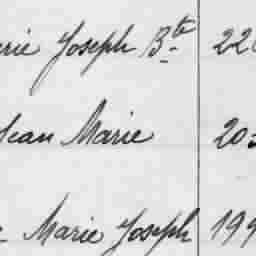 Joseph Bte 22
Jean Marie 20
Marie Joseph 199